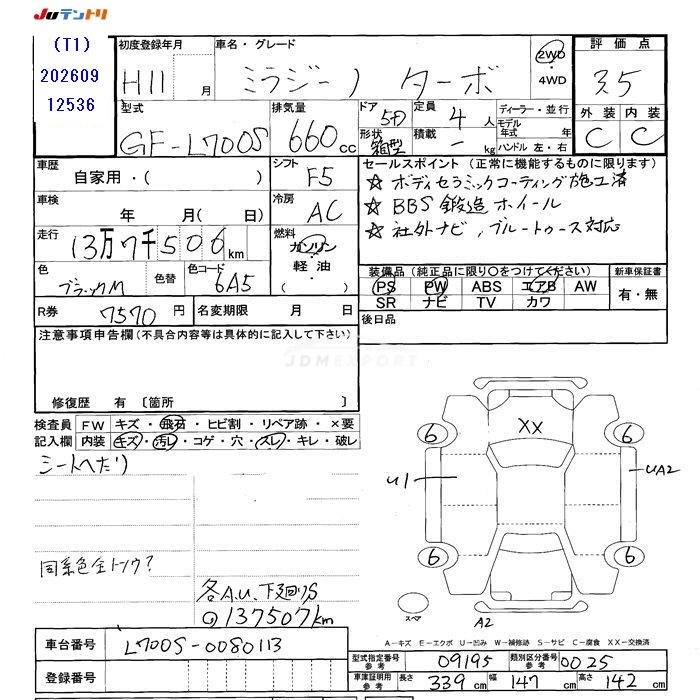 JUテントリ
(T1)
202609
12536
初度登録年月
H11 月
車名・グレード
ミラジーノ ターボ
2WD
・
4WD
評価点
3.5
外装 内装
C C
型式
GF-L700S
排気量
660 cc
ドア
5D
形状
箱型
定員
4 人
積載
- kg
ディーラー・並行
モデル
年式 年
ハンドル 左・右
車歴
自家用・( )
シフト
F5
車検
年 月( 日)
冷房
AC
走行
13万7千506 km
燃料
ガソリン
・
軽油
( )
色
ブラックM
色替
色コード
6A5
R券 7570 円
名変期限 月 日
セールスポイント (正常に機能するものに限ります)
☆ ボディセラミックコーティング施工済
☆ BBS 鍛造ホイール
☆ 社外ナビ、ブルートゥース対応
装備品 (純正品に限り○をつけてください)
PS PW ABS エアB AW
SR ナビ TV カワ
新車保証書
有・無
後日品
注意事項申告欄 (不具合内容等は具体的に記入して下さい)
JDMEXPORT
修復歴 有 〔箇所 〕
検査員
記入欄
FW キズ・飛石・ヒビ割・リペア跡・×要
内装 キズ・汚レ・コゲ・穴・スレ・キレ・破レ
シートヘタリ
同系色全トソウ?
各A.U、下廻りS
@137507km
XX
6 6
U1 UA2
6 6
スペア
A2
A-キズ E-エクボ U-凹み W-補修跡 S-サビ C-腐食 XX-交換済
車台番号 L700S-0080113
登録番号
型式指定番号
参考
09195
類別区分番号
参考
0025
車庫証明用
参考
長さ 339 cm 幅 147 cm 高さ 142 cm